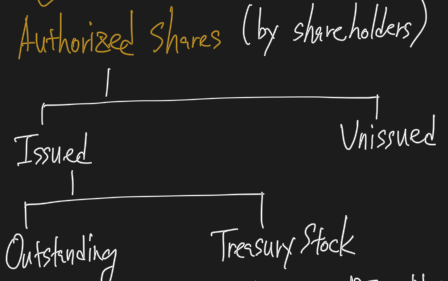 Authorized Shares (by shareholders)
Issued
Unissued
Outstanding
Treasury Stock